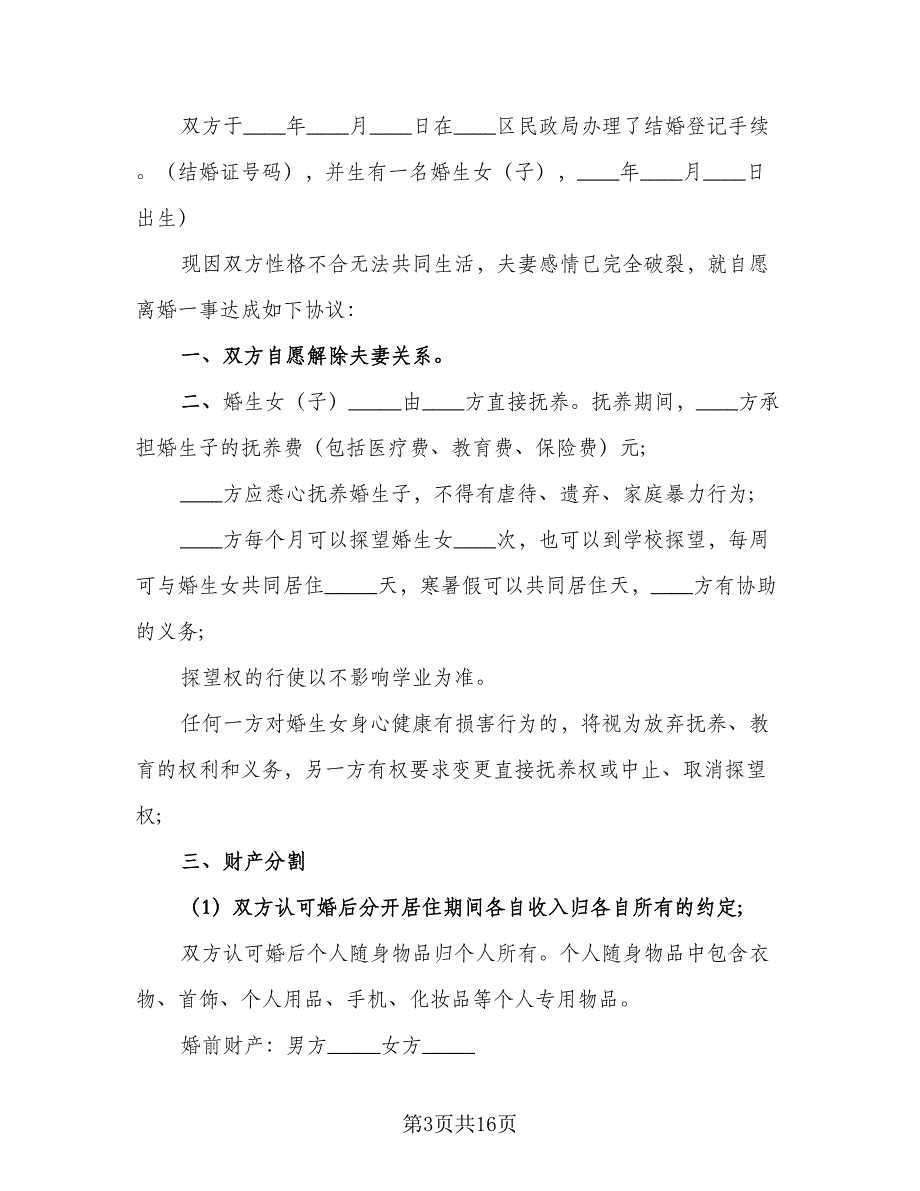 双方于____年____月____日在____区民政局办理了结婚登记手续
。（结婚证号码），并生有一名婚生女（子），____年____月____日
出生）
现因双方性格不合无法共同生活，夫妻感情已完全破裂，就自愿
离婚一事达成如下协议：
一、双方自愿解除夫妻关系。
二、婚生女（子）_____由____方直接抚养。抚养期间，____方承
担婚生子的抚养费（包括医疗费、教育费、保险费）元;
____方应悉心抚养婚生子，不得有虐待、遗弃、家庭暴力行为;
____方每个月可以探望婚生女____次，也可以到学校探望，每周
可与婚生女共同居住_____天，寒暑假可以共同居住天，____方有协助
的义务;
探望权的行使以不影响学业为准。
任何一方对婚生女身心健康有损害行为的，将视为放弃抚养、教
育的权利和义务，另一方有权要求变更直接抚养权或中止、取消探望
权;
三、财产分割
（1）双方认可婚后分开居住期间各自收入归各自所有的约定;
双方认可婚后个人随身物品归个人所有。个人随身物品中包含衣
物、首饰、个人用品、手机、化妆品等个人专用物品。
婚前财产：男方_____女方_____
第3页共16页